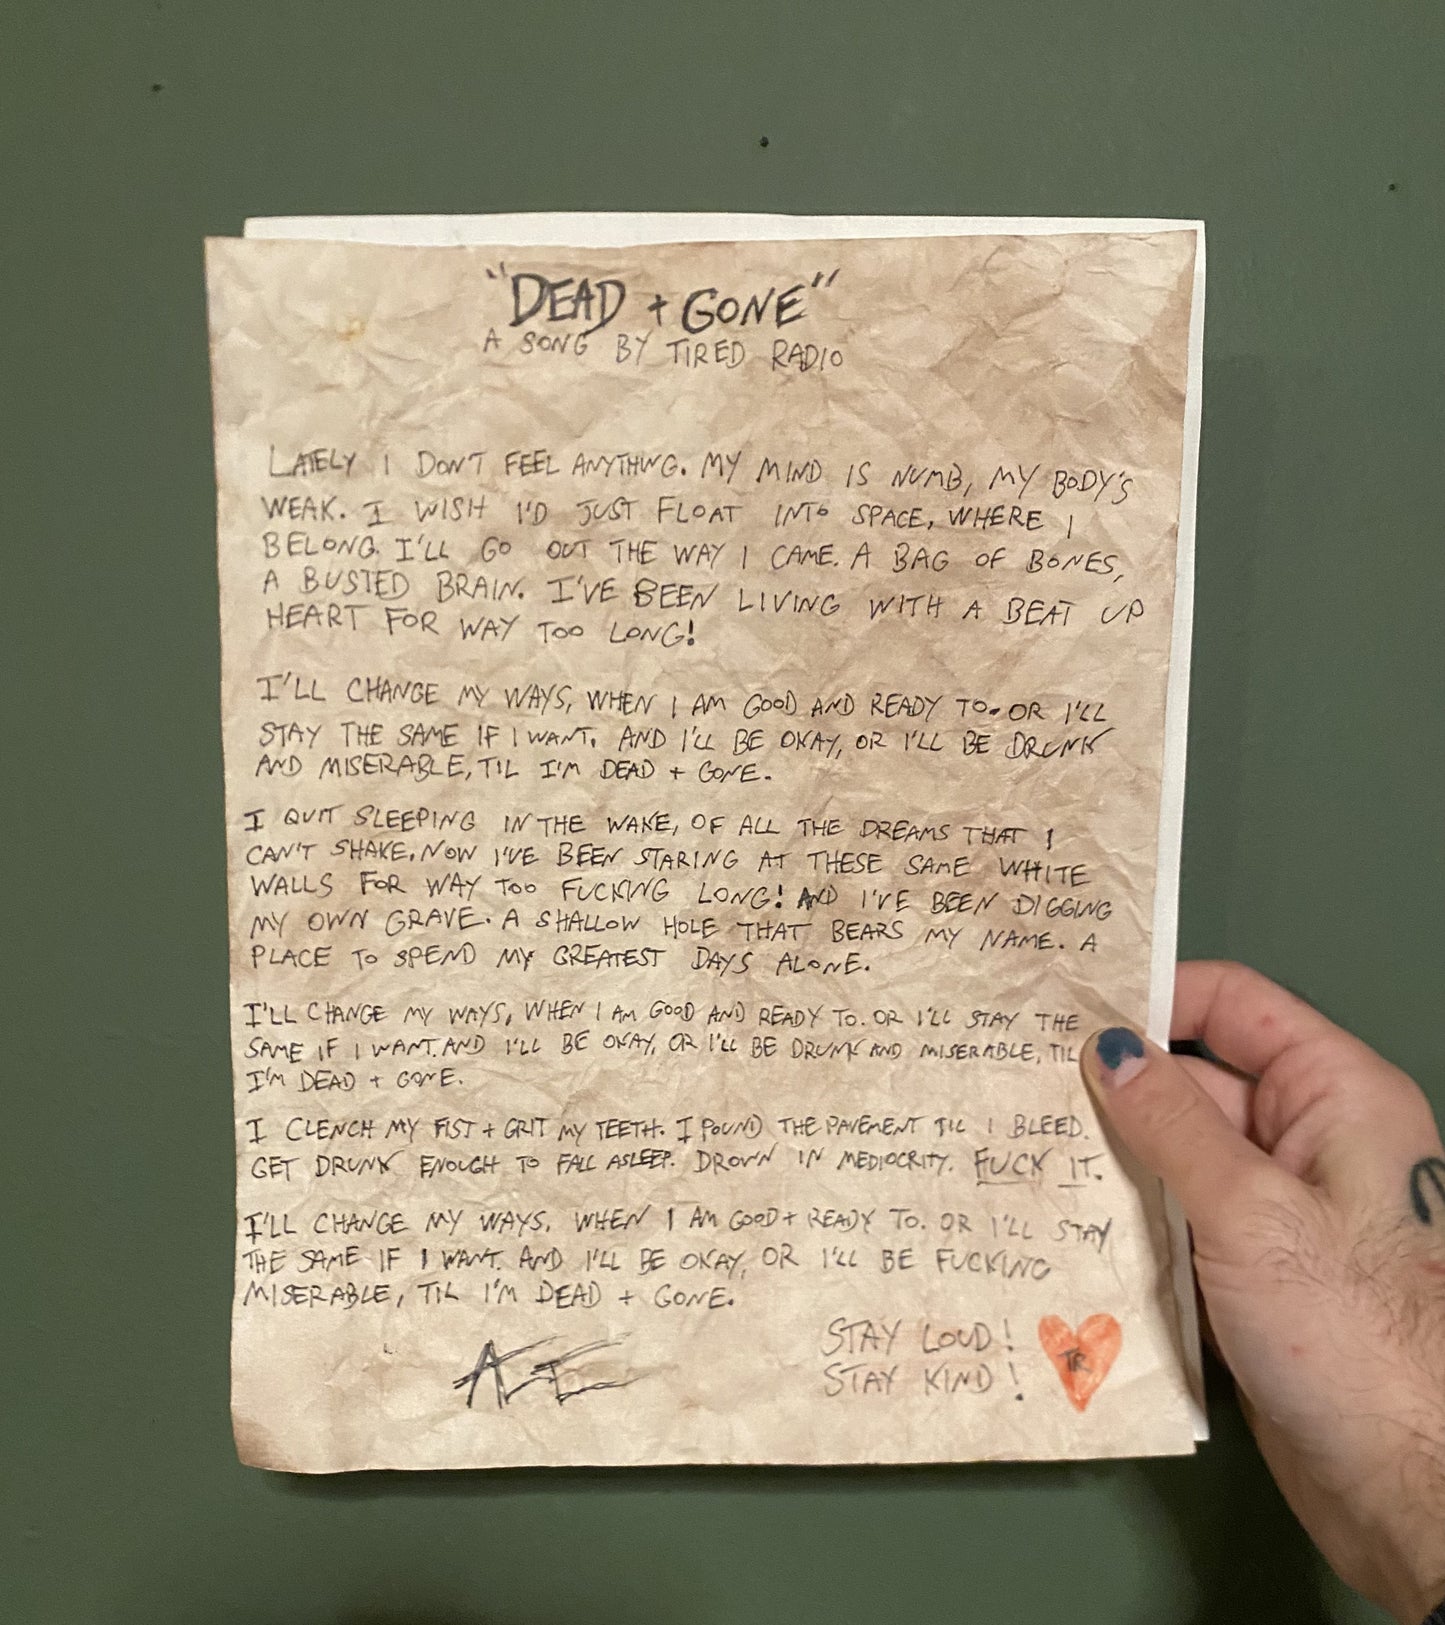 "DEAD + GONE"
A SONG BY TIRED RADIO
LATELY I DON'T FEEL ANYTHING. MY MIND IS NUMB, MY BODY'S
WEAK. I WISH I'D JUST FLOAT INTO SPACE, WHERE I
BELONG. I'LL GO OUT THE WAY I CAME. A BAG OF BONES,
A BUSTED BRAIN. I'VE BEEN LIVING WITH A BEAT UP
HEART FOR WAY TOO LONG!
I'LL CHANGE MY WAYS, WHEN I AM GOOD AND READY TO. OR I'LL
STAY THE SAME IF I WANT. AND I'LL BE OKAY, OR I'LL BE DRUNK
AND MISERABLE, TIL I'M DEAD + GONE.
I QUIT SLEEPING IN THE WAKE, OF ALL THE DREAMS THAT I
CAN'T SHAKE. NOW I'VE BEEN STARING AT THESE SAME WHITE
WALLS FOR WAY TOO FUCKING LONG! AND I'VE BEEN DIGGING
MY OWN GRAVE. A SHALLOW HOLE THAT BEARS MY NAME. A
PLACE TO SPEND MY GREATEST DAYS ALONE.
I'LL CHANGE MY WAYS, WHEN I AM GOOD AND READY TO. OR I'LL STAY THE
SAME IF I WANT. AND I'LL BE OKAY, OR I'LL BE DRUNK AND MISERABLE, TIL
I'M DEAD + GONE.
I CLENCH MY FIST + GRIT MY TEETH. I POUND THE PAVEMENT TIL I BLEED.
GET DRUNK ENOUGH TO FALL ASLEEP. DROWN IN MEDIOCRITY. FUCK IT.
I'LL CHANGE MY WAYS. WHEN I AM GOOD + READY TO. OR I'LL STAY
THE SAME IF I WANT. AND I'LL BE OKAY, OR I'LL BE FUCKING
MISERABLE, TIL I'M DEAD + GONE.
STAY LOUD!
STAY KIND!
TR